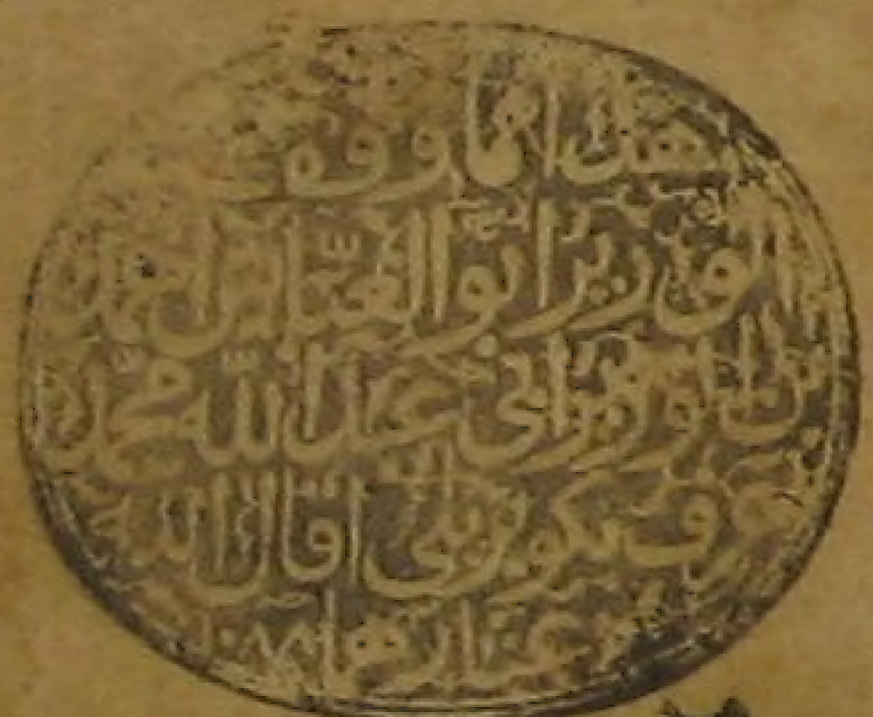 هذا ما وقفه
الوزير ابو العباس احمد
بن الوزير ابى عبد الله محمد
عرف بكوبريلى اقال الله
عثارهما ١٠٨٨